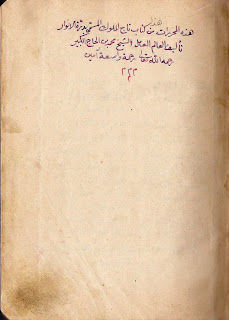 هذه المجربات من كتاب تاج الملوك المسمى بدرة الانوار
تأليف العالم العامل الشيخ محمد بن الحاج الكبير
رحمه الله تعالى رحمة واسعة آمين